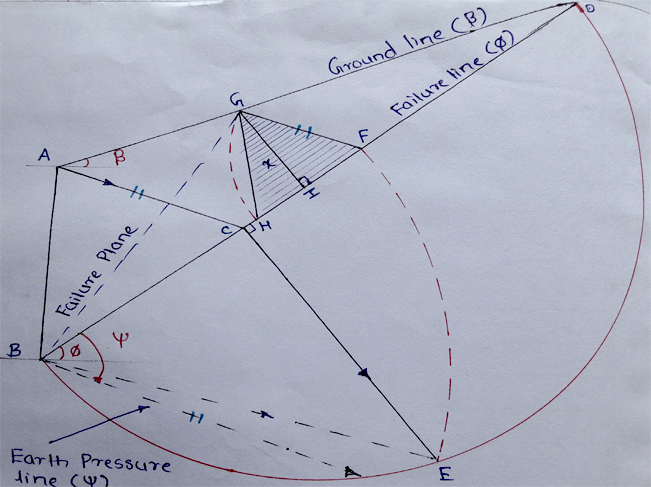 D
Ground line (β)
Failure line (Ø)
G
F
A
β
x
I
H
C
Failure Plane
Ψ
B
Ø
E
Earth Pressure
line (Ψ)